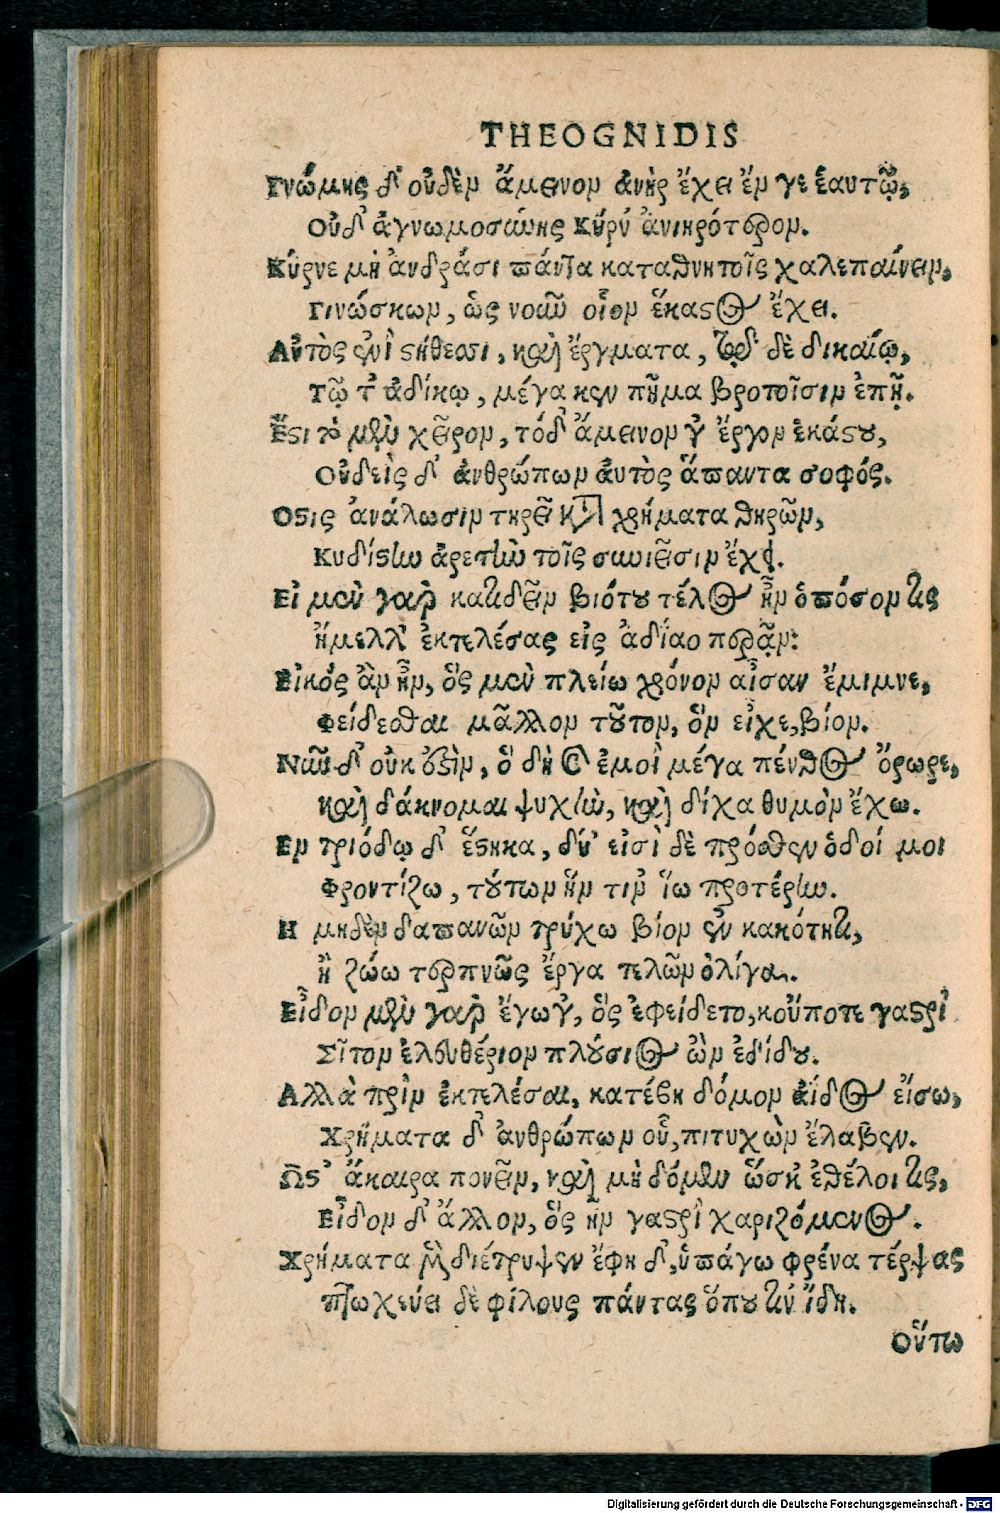 THEOGNIDIS
Γνώμης δ' οὐδὲν ἄμεινον ἀνὴρ ἔχει ἔν γε ἑαυτῷ,
Οὐδ' ἀγνωμοσύνης Κύρν' ἀνιηρότερον.
Κύρνε μὴ ἀνδράσι πάντα καταθνητοῖς χαλεπαίνειν,
Γινώσκων, ὡς νοῦν οἷον ἕκαστος ἔχει.
Αὐτὸς ἐνὶ στήθεσσι, καὶ ἔργματα, τῷδε δὲ δικαίῳ,
Τῷ τ' ἀδίκῳ, μέγα κεν πῆμα βροτοῖσιν ἐπῇ.
Ἔστι τὸ μὲν χεῖρον, τόδ' ἄμεινον γ' ἔργον ἑκάστου,
Οὐδεὶς δ' ἀνθρώπων αὐτὸς ἅπαντα σοφός.
Οστις ἀνάλωσιν τηρεῖ κατὰ χρήματα θηρῶν,
Κυδίστην ἀρετὴν τοῖς συνιεῖσιν ἔχει.
Εἰ μὲν γὰρ κατιδεῖν βιότου τέλος ἦν ὁπόσον τις
Ἤμελλ' ἐκτελέσας εἰς ἀΐδαο περᾷν:
Εἰκός ἂν ἦν, ὃς μὲν πλείω χρόνον αἶσαν ἔμιμνε,
Φείδεσθαι μᾶλλον τοῦτον, ὃν εἶχε, βίον.
Νῦν δ' οὐκ ἔστιν, ὃ δὴ καὶ ἐμοὶ μέγα πένθος ὄρωρε,
καὶ δάκνομαι ψυχὴν, καὶ δίχα θυμὸν ἔχω.
Εν τριόδῳ δ' ἕστηκα, δύ' εἰσὶ δὲ πρόσθεν ὁδοί μοι
Φροντίζω, τούτων ἥν τιν' ἴω προτέρην.
Η μηδὲν δαπανῶν τρύχω βίον ἐν κακότητι,
ἢ ζώω τερπνῶς ἔργα τελῶν ὀλίγα.
Εἶδον μὲν γὰρ ἔγωγ', ὃς ἐφείδετο, κοὔποτε γαστρὶ
Σῖτον ἐλευθέριον πλούσιος ὢν ἐδίδου.
Αλλὰ πρὶν ἐκτελέσαι, κατέβη δόμον ἀΐδος εἴσω,
Χρήματα δ' ἀνθρώπων οὗ,πιτυχὼν ἔλαβεν.
Ως τ' ἄκαιρα πονεῖν, καὶ μὴ δόμεν ᾧσκ' ἐθέλοι τις,
Εἶδον δ' ἄλλον, ὃς ἣν γαστρὶ χαριζόμενος.
Χρήματα μὲν διέτρυψεν ἔφη δ',ὑπάγω φρένα τέρψας
πτωχεύει δὲ φίλους πάντας ὅπου τιν' ἴδῃ.
Οὕτω
Digitalisierung gefördert durch die Deutsche Forschungsgemeinschaft - DFG